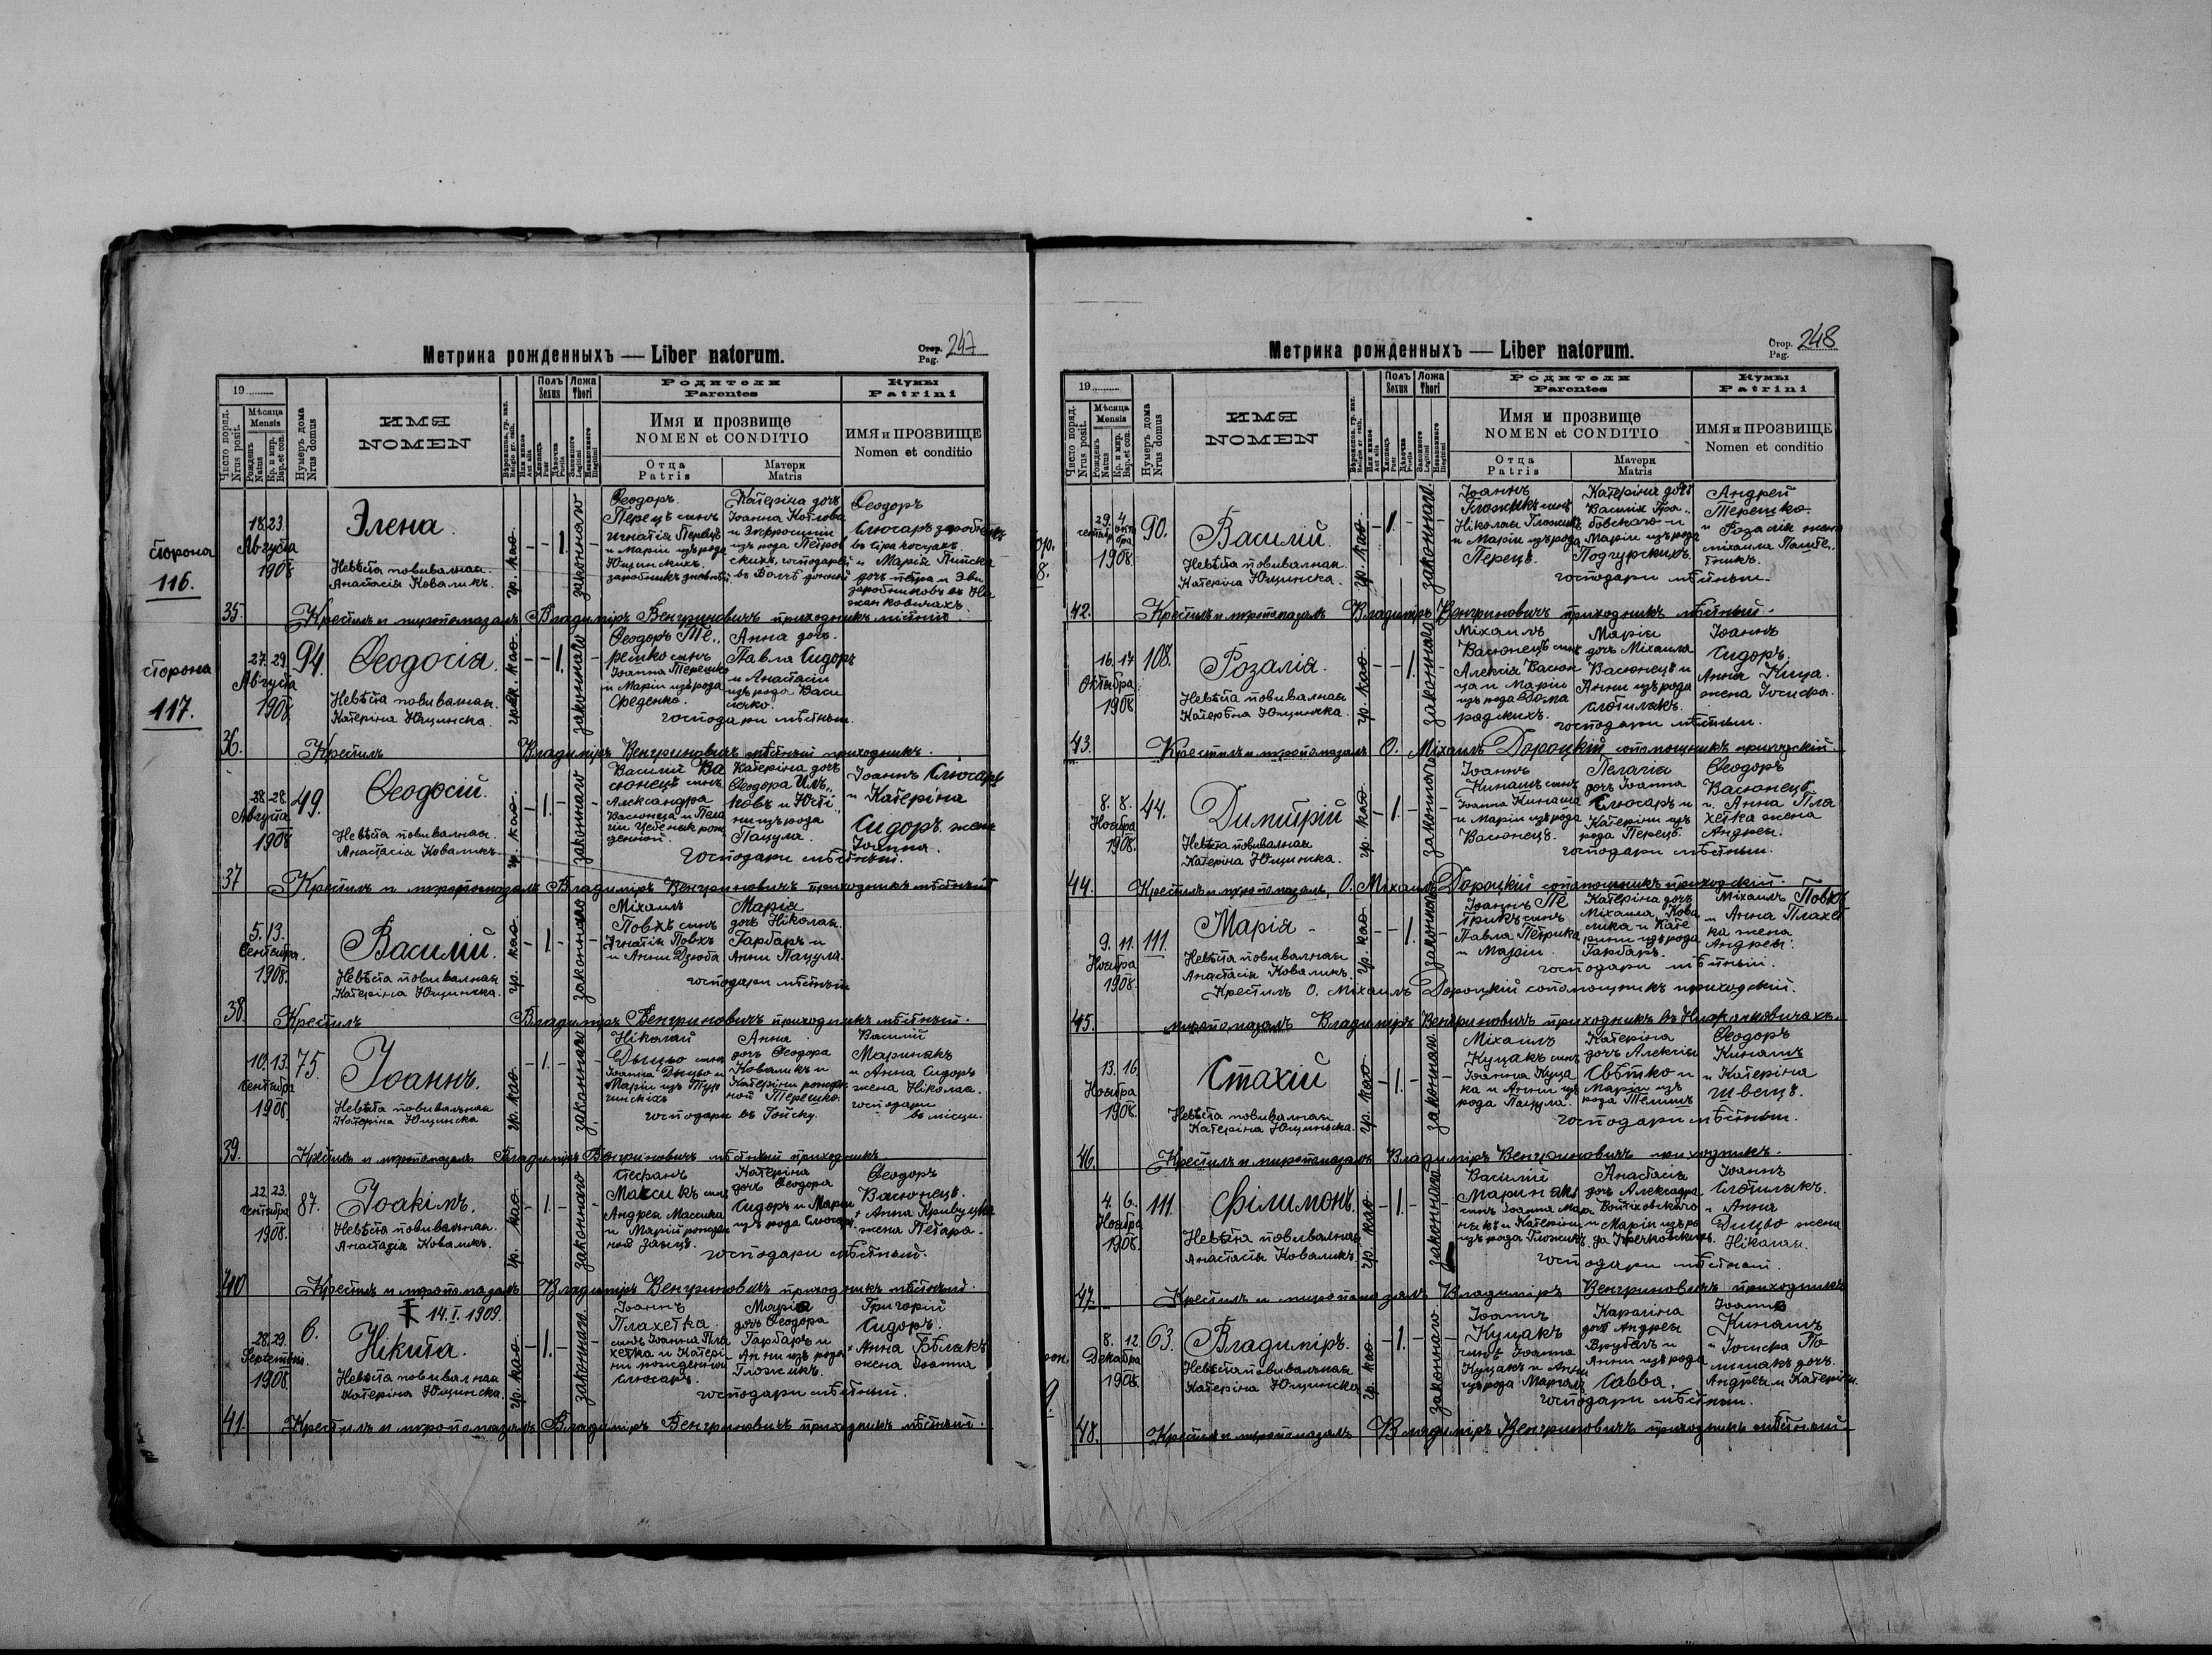 Метрика рожденныхъ — Liber natorum.
Стор. Pag. 247
19
Число поряд. Nrus posit.
Мѣсяца Mensis
Рожденъ Natus
Кр. и мир. Bap. et con.
Нумеръ дома Nrus domus
ИМЯ NOMEN
Полъ Sexus
Хлопецъ Puer
Дѣвочка Puella
Ложа Thori
Законного Legitimi
Незаконного Illegitimi
Родители Parentes
Имя и прозвище
NOMEN et CONDITIO
Отца Patris
Матери Matris
Кумы Patrini
ИМЯ и ПРОЗВИЩЕ
Nomen et conditio
сторона
116.
18. 23.
Августа
1908
Элена.
Невѣста повивалная
Анастасія Коваликъ.
гр. као.
1.
законного
Ѳеодоръ
Перецъ синъ
Игнатія Перецъ
и Маріи изъ рода
Ющинскихъ.
Катеріна доч.
Іоанна
и Эвфросиніи
изъ рода Петров
скихъ, господарей
Ѳеодоръ
Слюсаръ
и Марія
доч. Петра и Эви
заробниковъ въ
жанковичахъ.
35.
Крестилъ и миропомазалъ Владиміръ Венгриновичъ приходникъ мѣстный.
сторона
117.
27. 29.
Августа
1908.
94.
Ѳеодосія.
Невѣста повивалная.
Катеріна Ющинска.
грек. као.
1.
законного
Ѳеодоръ Те„
решко синъ
Іоанна Терешко
и Маріи изъ рода
Середенко.
Анна доч.
Павла Сидоръ
и Анастасіи
изъ рода Васи
лечко.
господари мѣстныи.
36.
Крестилъ Владиміръ Венгриновичъ мѣстный приходникъ.
28. 28.
Августа
1908
49.
Ѳеодосій.
Невѣста повивалная.
Анастасія Коваликъ.
гр. као.
1.
законного
Василій Ва
сюнецъ синъ
Александра
Васюнецъ и Пела
гіи Цебеняк рож
денной.
Катеріна доч.
Ѳеодора Иль„
ковъ и Юсті„
ни изъ рода
Пацула.
господари мѣстныи.
Іоаннъ Слюсаръ
и Катеріна
Сидоръ жена
Іоанна.
37
Крестилъ и миропомазалъ Владиміръ Венгриновичъ приходникъ мѣстный
5. 13.
Сентебра.
1908.
Василій.
Невѣста повивалная
Катеріна Ющинска.
гр. као
1.
законного
Міхаилъ
Повхъ синъ
Игнатія Повхъ
и Анни Дзюба
Марія
доч. Ніколая
Гарбаръ и
Анни Пацула.
господари мѣстныи
38.
Крестилъ Владиміръ Венгриновичъ приходникъ мѣстный.
10. 13.
Сентебра
1908.
75.
Іоаннъ.
Невѣста повивалная
Катеріна Ющинска
гр. као.
1.
законного
Ніколай
Дыцьо синъ
Іоанна Дыцьо и
Маріи изъ Тур
чинскихъ
Анна
доч. Ѳеодора
Коваликъ и
Катеріни рожден
ной Терешко.
господари въ
Василій
Маринякъ
и Анна Сидоръ
жена Ніколая.
господари
въ мѣсци.
39.
Крестилъ и миропомазалъ Владиміръ Венгриновичъ мѣстный приходникъ.
22. 23.
Сентебра
1908.
87.
Іоакімъ.
Невѣста повивалная.
Анастазія Коваликъ.
гр. као
1.
законного
Стефанъ
Массикъ синъ
Андрея Массика
и Маріи рожден
ной Заяцъ.
Катеріна
доч. Ѳеодора
Сидоръ и Маріи
изъ рода Слюсаръ.
господари мѣстныи.
Ѳеодоръ
Васюнецъ.
Анна Кривуцка
жена Петара.
40
Крестилъ и миропомазалъ Владиміръ Венгриновичъ приходникъ мѣстный.
14. I. 1909.
28. 29.
Septembr.
1908.
6.
Нікита.
Невѣста повивалная
Катеріна Ющинска.
гр. као
1.
законного
Іоаннъ
Плахетка.
синъ Іоанна Пла
хетка и Катері
ни рожденной
Слюсаръ.
Марія
доч. Ѳеодора
Гарбаръ и
Анни изъ рода
Гложикъ.
господари мѣстныи.
Григорій
Сидоръ.
Анна Бѣлакъ
жена Іоанна
41.
Крестилъ и миропомазалъ Владиміръ Венгриновичъ приходникъ мѣстный.
Метрика рожденныхъ — Liber natorum.
Стор. Pag. 248
19
Число поряд. Nrus posit.
Мѣсяца Mensis
Рожденъ Natus
Кр. и мир. Bap. et con.
Нумеръ дома Nrus domus
ИМЯ NOMEN
Полъ Sexus
Ложа Thori
Родители Parentes
Имя и прозвище
NOMEN et CONDITIO
Отца Patris
Матери Matris
Кумы Patrini
ИМЯ и ПРОЗВИЩЕ
Nomen et conditio
29. 4
1908.
90.
Василій.
Невѣста повивалная
Катеріна Ющинска.
гр. као.
1.
законного.
Іоаннъ
Гложикъ синъ
Ніколая Гложикъ
и Маріи изъ рода
Перецъ.
Катеріна доч.
Василія Гра„
бовского и
Маріи изъ рода
Подгурскихъ.
господари мѣстныи.
Андрей
Терешко.
и Розалія жена
Міхаила
42.
Крестилъ и миропомазалъ Владиміръ Венгриновичъ приходникъ мѣстный.
16. 17
Октобра
1908
108.
Розалія.
Невѣста повивалная
Катеріна Ющинска.
гр. као.
1.
законного
Міхаилъ
Васюнецъ синъ
Алексія Васюн
ца и Маріи
изъ рода Дома
радскихъ.
Марія
доч. Міхаила
Васюнецъ и
Анни изъ рода
Слотилякъ.
господари мѣстныи.
Іоаннъ
Сидоръ.
Анна Куца.
жена Іосифа.
43.
Крестилъ и миропомазалъ О. Міхаилъ Дороцкій сопомощникъ приходскій.
8. 8.
Ноябра
1908.
44.
Димитрій
Невѣста повивалная
Катеріна Ющинска.
гр. као
1.
законного
Іоаннъ
Кинашъ синъ
Іоанна Кинаша
и Маріи изъ рода
Васюнецъ.
Пелагія
доч. Іоанна
Слюсаръ и
Катеріни изъ
рода Перецъ.
господари мѣстныи.
Ѳеодоръ
Васюнецъ
и Анна Пла
хетка жена
Андрея.
44.
Крестилъ и миропомазалъ, О. Міхаилъ Дороцкій сопомощникъ приходскій.
9. 11.
Ноябра
1908.
111.
Марія
Невѣста повивалная
Анастасія Коваликъ.
гр. као
1.
законного
Іоаннъ Пе
трикъ синъ
Павла Петрика
и Маріи.
Катеріна доч.
Міхаила Кова
лика и Кате
рини изъ рода
Гарбаръ.
господари мѣстныи.
Міхаилъ Повхъ
и Анна Плахет
ка жена
Андрея.
Крестилъ О. Міхаилъ Дороцкій сопомощникъ приходскій.
45.
миропомазалъ Владиміръ Венгриновичъ приходникъ въ Нижанковичахъ.
13. 16.
Ноябра
1908.
Стахій
Невѣста повивалная
Катеріна Ющинска.
гр. као
1.
законного
Міхаилъ
Куцакъ синъ
Іоанна Куца
ка и Анни изъ
рода Пацула.
Катеріна
доч. Алексія
Свѣтко и
Маріи изъ
рода Телишъ
господари мѣстныи.
Ѳеодоръ
Кинашъ
и Катеріна
Швецъ.
46.
Крестилъ и миропомазалъ Владиміръ Венгриновичъ приходникъ.
4. 6.
Ноябра
1908.
111.
Філимонъ.
Невѣста повивалная
Анастасія Коваликъ.
гр. као
1.
законного
Василій
Маринякъ
синъ Іоанна Мари
някъ и Катеріни
изъ рода Гложикъ.
Анастасія
доч. Александра
Войтѣховского
и Маріи изъ ро
да
господари мѣстныи.
Іоаннъ
Слотилякъ.
Анна
Дицьо жена
Ніколая.
47.
Крестилъ и миропомазалъ Владиміръ Венгриновичъ приходникъ
8. 12
Декабра
1908.
63.
Владиміръ.
Невѣста повивалная
Катеріна Ющинска
гр. као.
1.
законного.
Іоаннъ
Куцакъ
синъ Іоанна
Куцакъ и Анни
изъ рода
доч. Андрея
Врубель и
Анни изъ рода
Савва.
господари мѣстныи.
Іоаннъ
Кинашъ
и Іосифа По
лишакъ доч.
Андрея и Катеріни.
48.
Крестилъ и миропомазалъ Владиміръ Венгриновичъ приходникъ мѣстный.